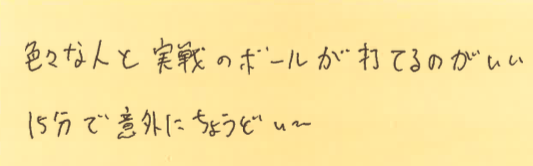 色々な人と実戦のボールが打てるのがいい
15分で意外にちょうどいい〜